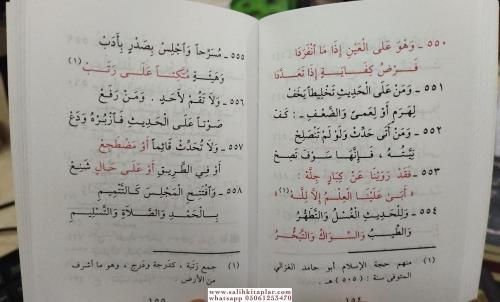 ٥٥٠ ـ وَهُوَ عَلَى الْعَيْنِ إِذَا مَا انْفَرَدَا
فَرْضُ كِفَايَةٍ إِذَا تَعَدَّدَا
٥٥١ ـ وَمَنْ عَلَى الْحَدِيثِ تَخْلِيطاً يَخَفْ
لِهَرَمٍ أَوْ لِعَمًى وَالضَّعْفِ : كَفْ
٥٥٢ ـ وَمَنْ أَتَى حَدِّثْ وَلَوْ لَمْ تَنْصَلِحْ
نِيَّتُهُ ، فَإِنَّهَا سَوْفَ تَصِحْ
٥٥٣ ـ فَقَدْ رَوَيْنَا عَنْ كِبَارٍ جِلَّهْ :
« أَبَى عَلَيْنَا الْعِلْمُ إِلَّا لِلَّهْ » (١)
٥٥٤ ـ وَلِلْحَدِيثِ الْغُسْلُ وَالتَّطَهُّرُ
وَالطِّيبُ وَالسِّوَاكُ وَالتَّبَخُّرُ
(١) منهم حجة الإسلام أبو حامد الغزالي
المتوفى سنة (٥٠٥) هـ .
١٥٤
٥٥٥ ـ مُسَرِّحاً وَاجْلِسْ بِصَدْرٍ بِأَدَبْ
وَهَيْئَةٍ مُتَّكِئاً عَلَى رَتَبْ (١)
٥٥٦ ـ وَلَا تَقُمْ لِأَحَدٍ . وَمَنْ رَفَعْ
صَوْتاً عَلَى الْحَدِيثِ فَازْبُرْهُ وَدَعْ
٥٥٧ ـ وَلَا تُحَدِّثْ قَائِماً أَوْ مُضْطَجِعْ
أَوْ فِي الطَّرِيقِ أَوْ عَلَى حَالٍ شَنِعْ
٥٥٨ ـ وَافْتَتِحِ الْمَجْلِسَ كَالتَّتْمِيمِ
بِالْحَمْدِ وَالصَّلَاةِ وَالتَّسْلِيمِ
(١) جمع رتبة ، كدرجة ودرج ، وهو ما أشرف
من الأرض
١٥٥
www.salihkitaplar.com
whatsapp 05061253470